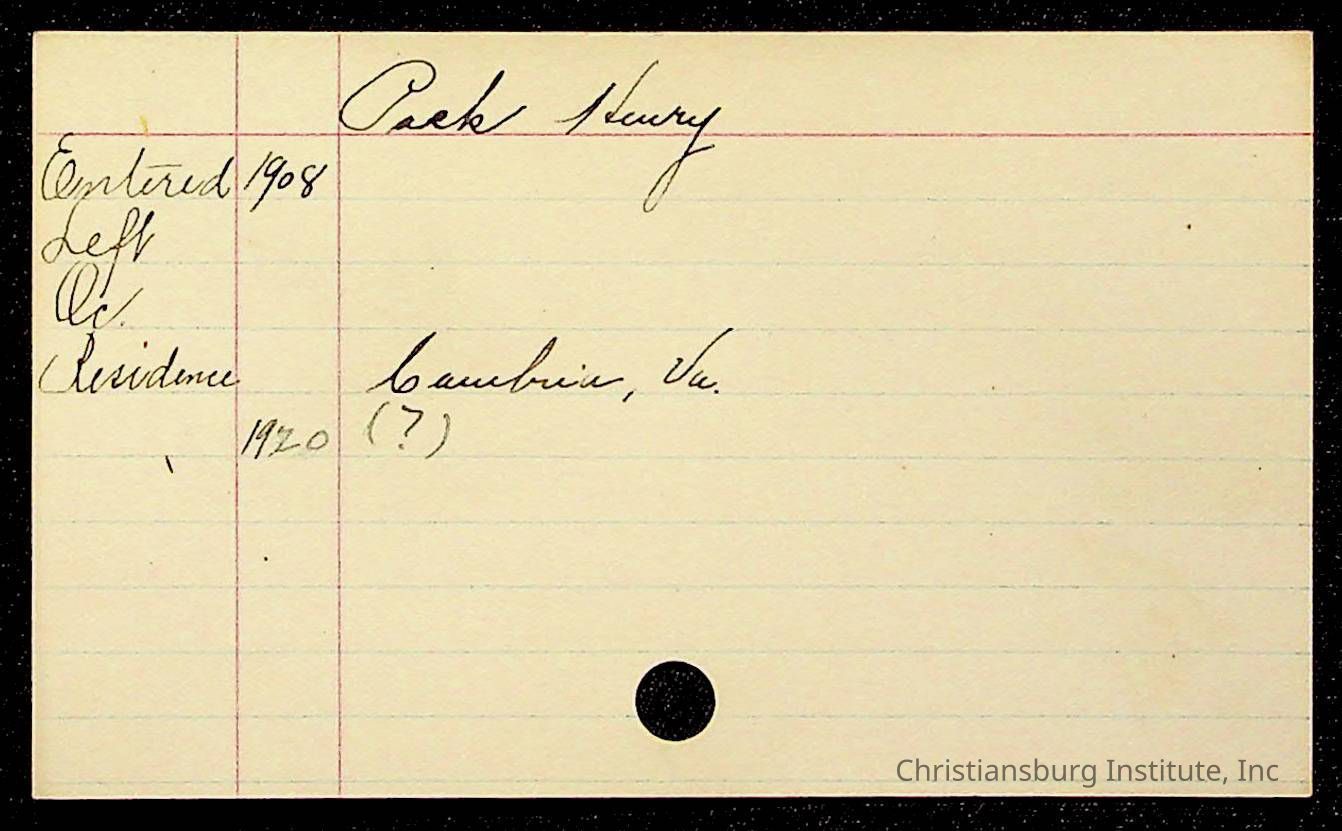 Pack Henry
Entered 1908
Left
Oc.
Residence Cambria, Va.
1920 (?)
Christiansburg Institute, Inc